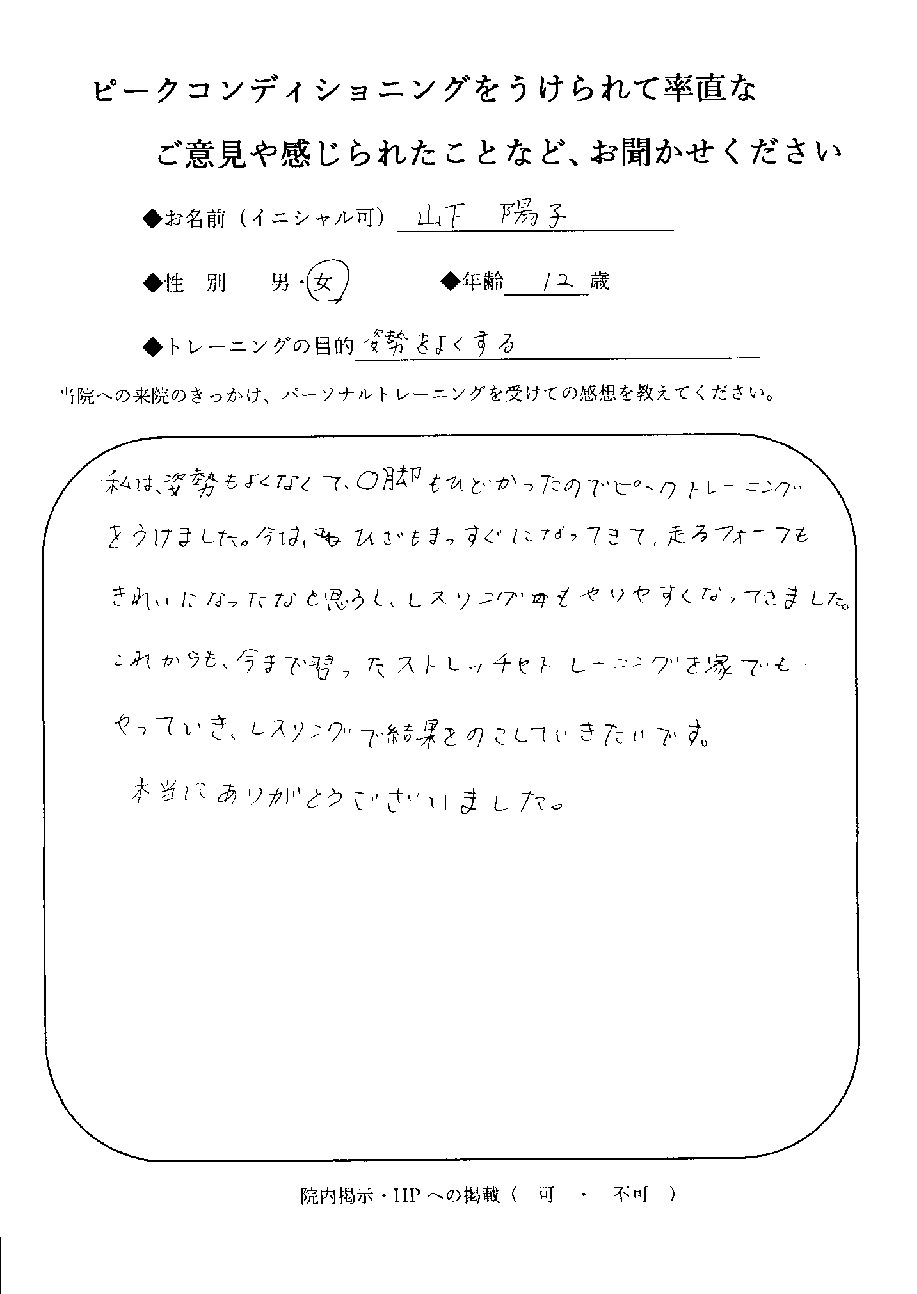 ピークコンディショニングをうけられて率直な
ご意見や感じられたことなど、お聞かせください
◆お名前（イニシャル可） 山下 陽子
◆性 別 男・女 ◆年齢 12 歳
◆トレーニングの目的 姿勢をよくする
当院への来院のきっかけ、パーソナルトレーニングを受けての感想を教えてください。
私は、姿勢もよくなくて、O脚もひどかったのでピークトレーニング
をうけました。今は、ひざもまっすぐになってきて、走るフォームも
きれいになったなと思うし、レスリングもやりやすくなってきました。
これからも、今まで習ったストレッチやトレーニングを家でも
やっていき、レスリングで結果をのこしていきたいです。
本当にありがとうございました。
院内掲示・HPへの掲載（ 可 ・ 不可 ）